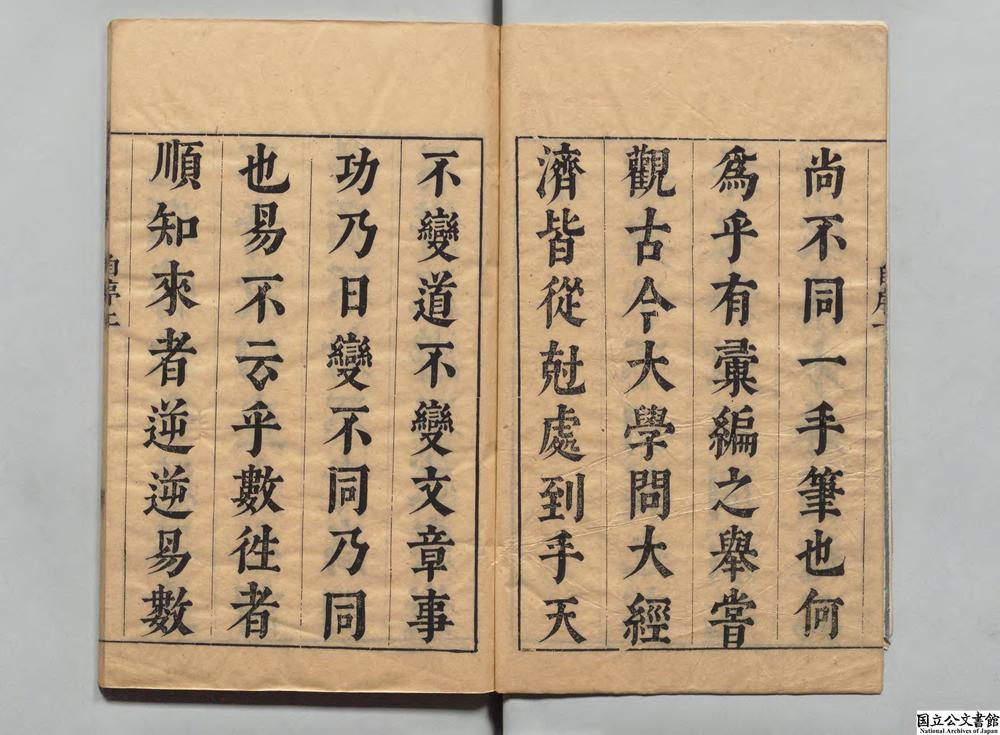 尚不同一手筆也何
爲乎有彚編之舉嘗
觀古今大學問大經
濟皆從尅處到手天
不變道不變文章事
功乃日變不同乃同
也易不云乎數徃者
順知來者逆逆易數
自序上
国立公文書館
National Archives of Japan